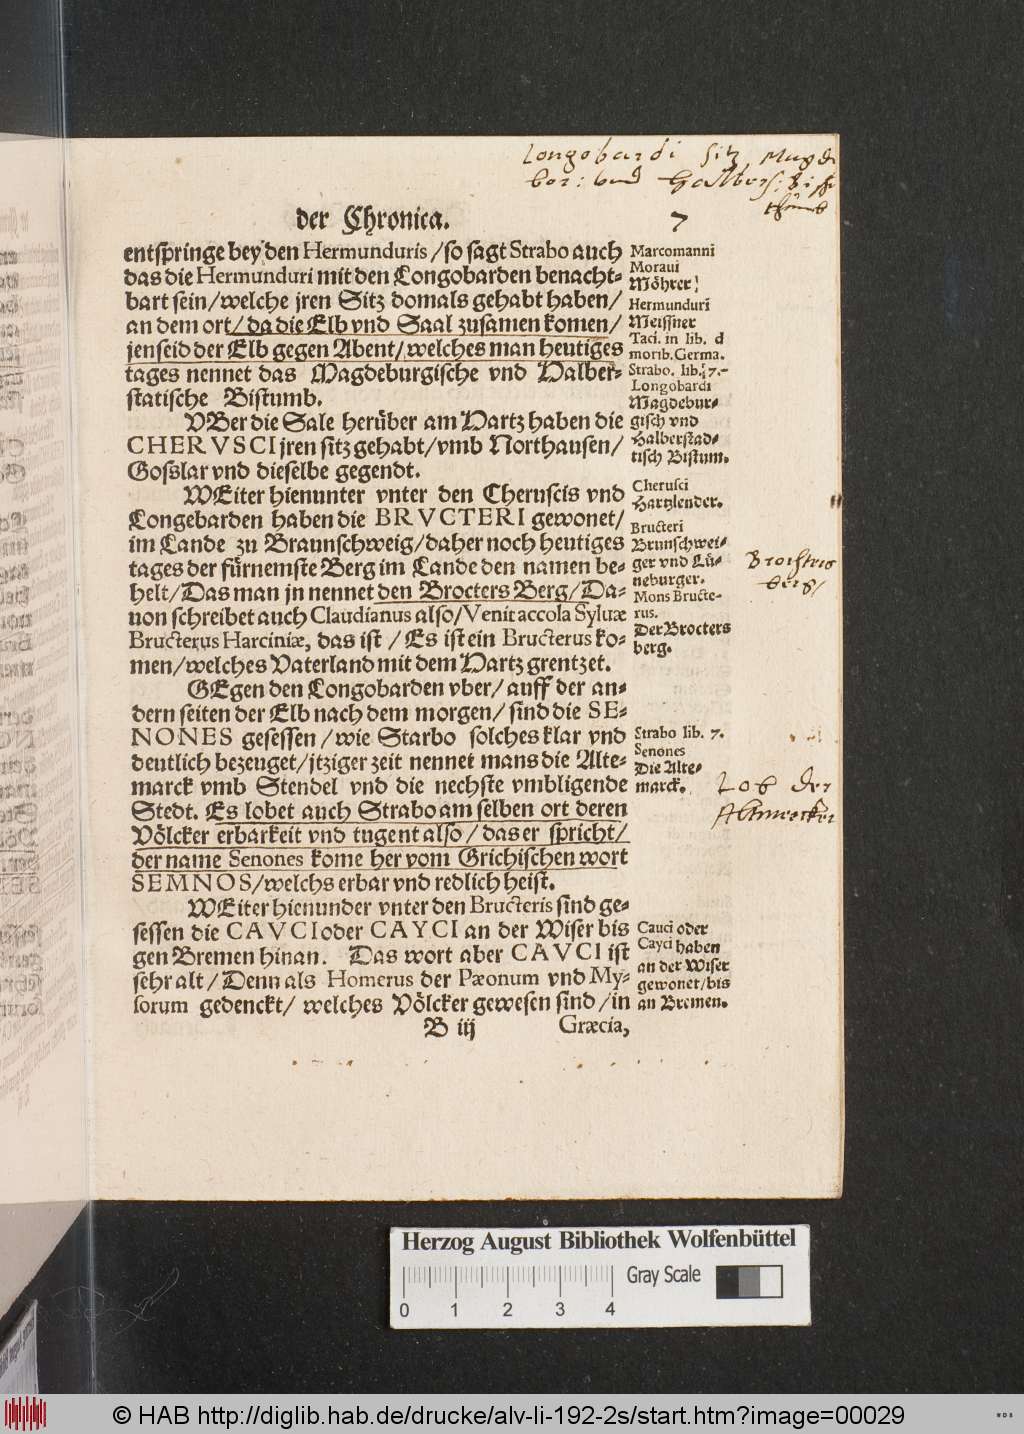 Longobardi sitz Magde
bor: vnd Halbers: Bisth
thumb
der Chronica. 7
entspringe bey den Hermunduris / so sagt Strabo auch
das die Hermunduri mit den Longobarden benacht-
bart sein / welche jren Sitz domals gehabt haben /
an dem ort / da die Elb vnd Saal zusamen komen /
jenseid der Elb gegen Abent / welches man heutiges
tages nennet das Magdeburgische vnd Halber-
statische Bistumb.
VBer die Sale herüber am Hartz haben die
CHERVSCI jren sitz gehabt / vmb Northausen /
Goßlar vnd dieselbe gegendt.
WEiter hienunter vnter den Cheruscis vnd
Longebarden haben die BRVCTERI gewonet /
im Lande zu Braunschweig / daher noch heutiges
tages der fürnemste Berg im Lande den namen be-
helt / Das man jn nennet den Brocters Berg / Da-
uon schreibet auch Claudianus also / Venit accola Syluæ
Bructerus Harciniæ, das ist / Es ist ein Bructerus ko-
men / welches Vaterland mit dem Hartz grentzet.
GEgen den Longobarden vber / auff der an-
dern seiten der Elb nach dem morgen / sind die SE-
NONES gesessen / wie Starbo solches klar vnd
deutlich bezeuget / jtziger zeit nennet mans die Alte-
marck vmb Stendel vnd die nechste vmbligende
Stedt. Es lobet auch Strabo am selben ort deren
Völcker erbarkeit vnd tugent also / das er spricht /
der name Senones kome her vom Grichischen wort
SEMNOS / welchs erbar vnd redlich heist.
WEiter hienunder vnter den Bructeris sind ge-
sessen die CAVCI oder CAYCI an der Wiser bis
gen Bremen hinan. Das wort aber CAVCI ist
sehr alt / Denn als Homerus der Pæonum vnd My-
sorum gedenckt / welches Völcker gewesen sind / in
B iij Græcia,
Marcomanni
Moraui
Möhrer
Hermunduri
Meissner
Taci. in lib. d
morib. Germa.
Strabo. lib. 7.
Longobardi
Magdebur-
gisch vnd
Halberstad-
tisch Bistum.
Cherusci
Hartzlender.
Bructeri
Brunschwei-
ger vnd Lü-
neburger.
Mons Bructe-
rus.
Der Brocters
berg.
Strabo lib. 7.
Senones
Die Alte-
marck.
Cauci oder
Cayci haben
an der Wiser
gewonet / bis
an Bremen.
berg /
Lob der
Altmercker
Herzog August Bibliothek Wolfenbüttel
Gray Scale
0 1 2 3 4
© HAB http://diglib.hab.de/drucke/alv-li-192-2s/start.htm?image=00029